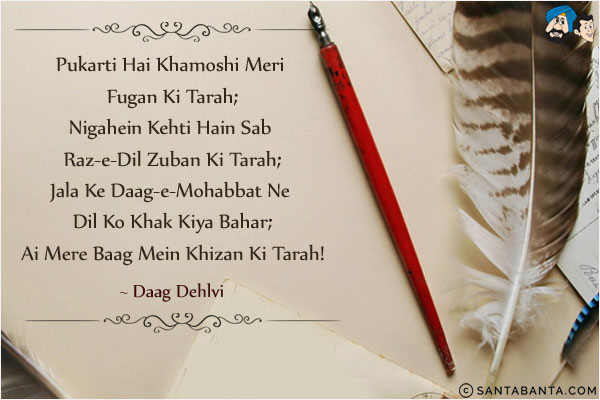 Pukarti Hai Khamoshi Meri
Fugan Ki Tarah;
Nigahein Kehti Hain Sab
Raz-e-Dil Zuban Ki Tarah;
Jala Ke Daag-e-Mohabbat Ne
Dil Ko Khak Kiya Bahar;
Ai Mere Baag Mein Khizan Ki Tarah!
~ Daag Dehlvi
© SANTABANTA.COM